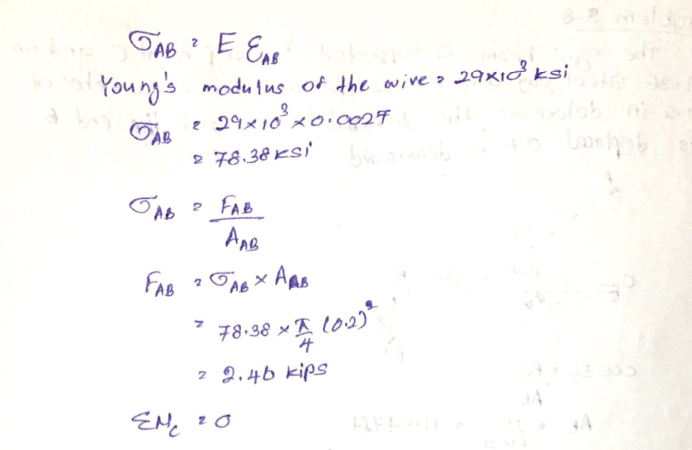 σAB = E εAB
Young's modulus of the wire = 29×10³ ksi
σAB = 29×10³ × 0.0027
= 78.38 ksi
σAB = FAB / AAB
FAB = σAB × AAB
= 78.38 × π/4 (0.2)²
= 2.46 kips
ΣMc = 0